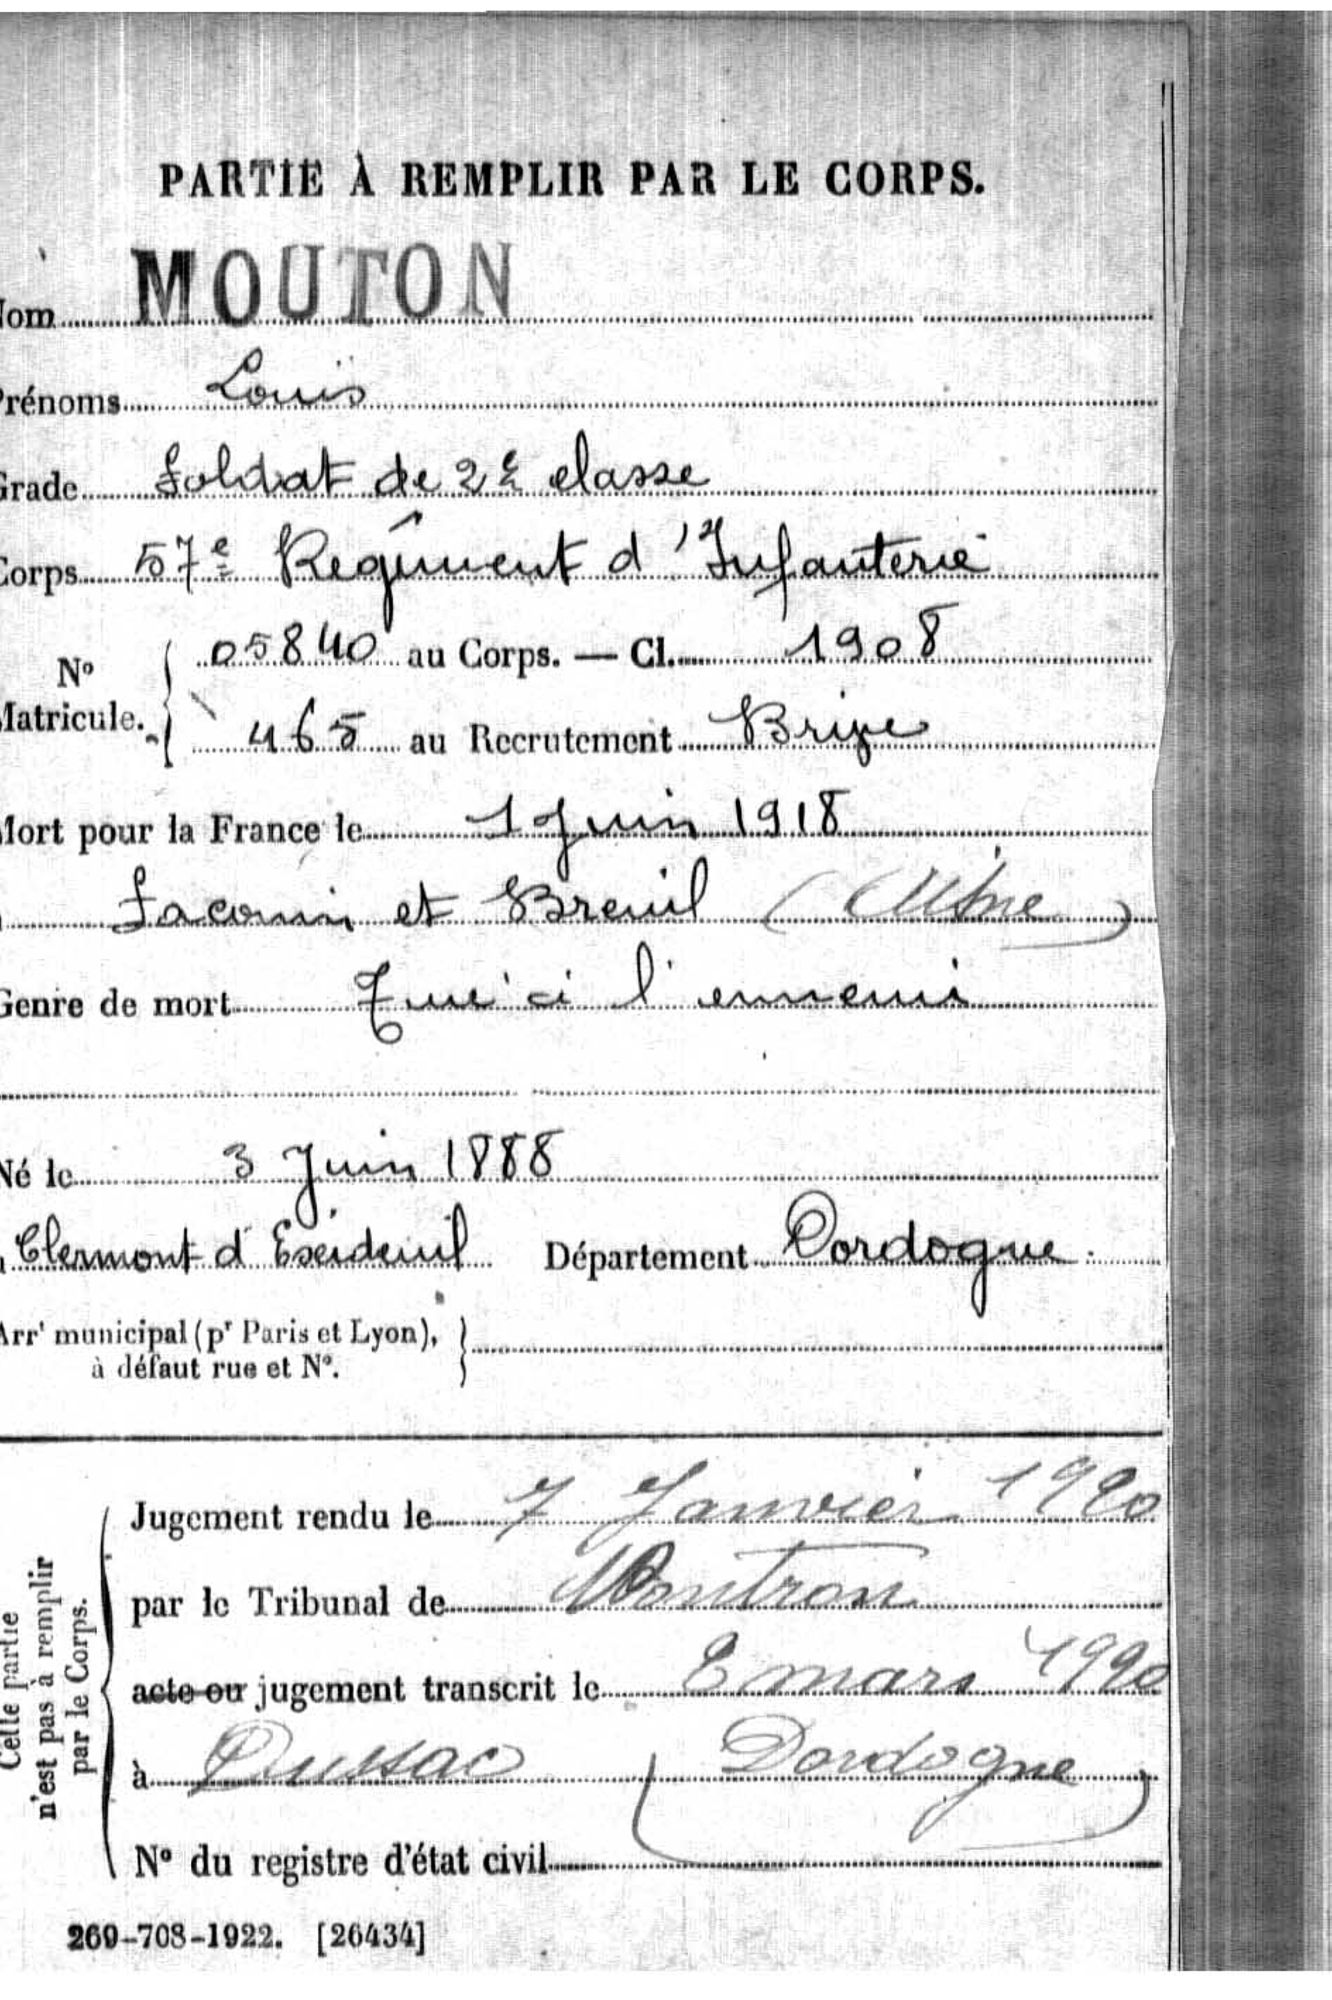 PARTIE À REMPLIR PAR LE CORPS.
Nom MOUTON
Prénoms Louis
Grade Soldat de 2e classe
Corps 57e Régiment d'Infanterie
Nº Matricule. 05840 au Corps. — Cl. 1908
465 au Recrutement Brive
Mort pour la France le 1 Juin 1918
à et Breuil (Aisne)
Genre de mort Tué à l'ennemi
Né le 3 Juin 1888
à Clermont d'Exideuil Département Dordogne
Arrt municipal (pr Paris et Lyon),
à défaut rue et Nº.
Cette partie
n'est pas à remplir
par le Corps.
Jugement rendu le 7 Janvier 1920
par le Tribunal de Nontron
acte ou jugement transcrit le mars 1920
à Dussac (Dordogne)
Nº du registre d'état civil
269-708-1922. [26434]